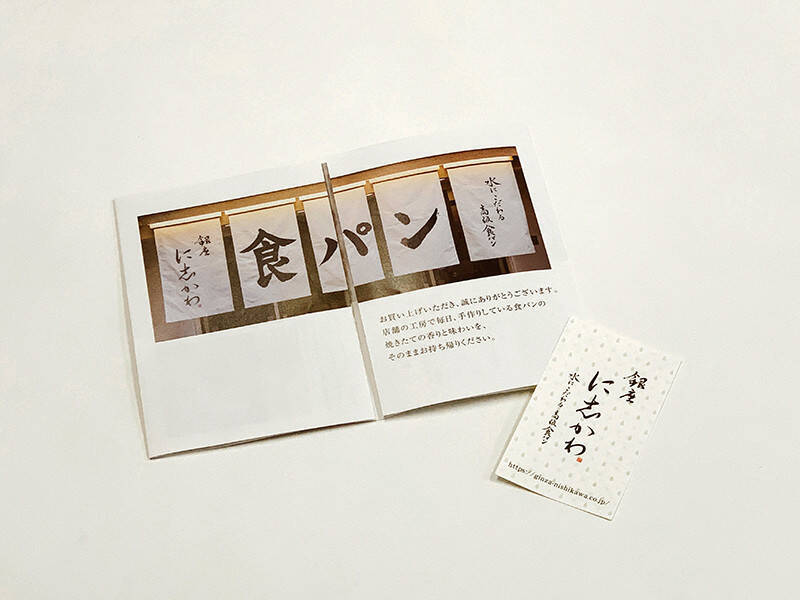 銀座
に志かわ
食パン
水にこだわる
高級食パン
お買い上げいただき、誠にありがとうございます。
店舗の工房で毎日、手作りしている食パンの
焼きたての香りと味わいを、
そのままお持ち帰りください。
銀座
に志かわ
水にこだわる高級食パン
https://ginza-nishikawa.co.jp/